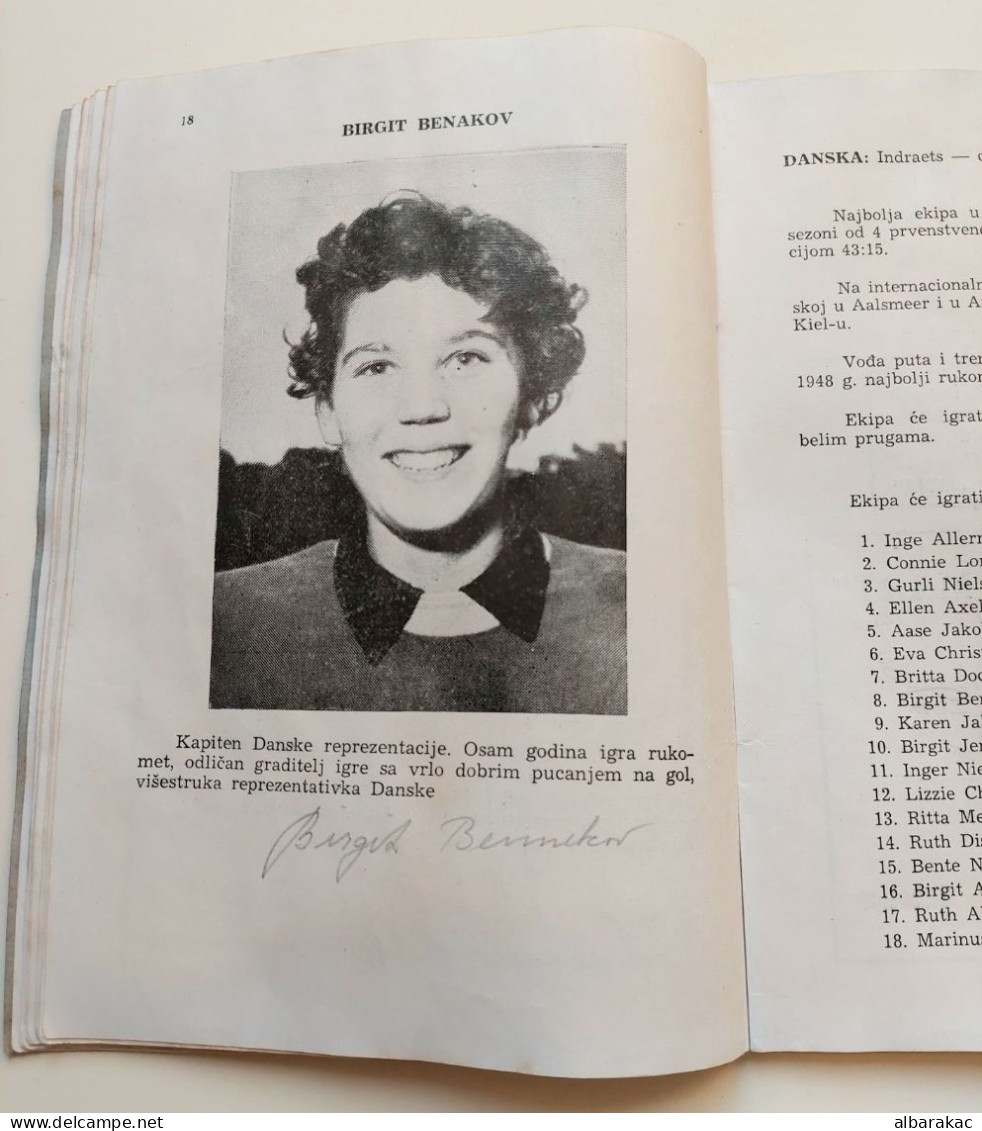 18
BIRGIT BENAKOV
Kapiten Danske reprezentacije. Osam godina igra ruko-
met, odličan graditelj igre sa vrlo dobrim pucanjem na gol,
višestruka reprezentativka Danske
Birgit Bennekov
DANSKA: Indraets —
Najbolja ekipa u
sezoni od 4 prvenstven
cijom 43:15.
Na internacionaln
skoj u Aalsmeer i u
Kiel-u.
Vođa puta i tren
1948 g. najbolji rukom
Ekipa će igrat
belim prugama.
Ekipa će igrati
1. Inge Allern
2. Connie Lor
3. Gurli Niels
4. Ellen Axel
5. Aase Jako
6. Eva Christ
7. Britta Doc
8. Birgit Ben
9. Karen Jak
10. Birgit Jen
11. Inger Nie
12. Lizzie Ch
13. Ritta Me
14. Ruth Dis
15. Bente N
16. Birgit A
17. Ruth Al
18. Marinus
delcampe.net
albarakac